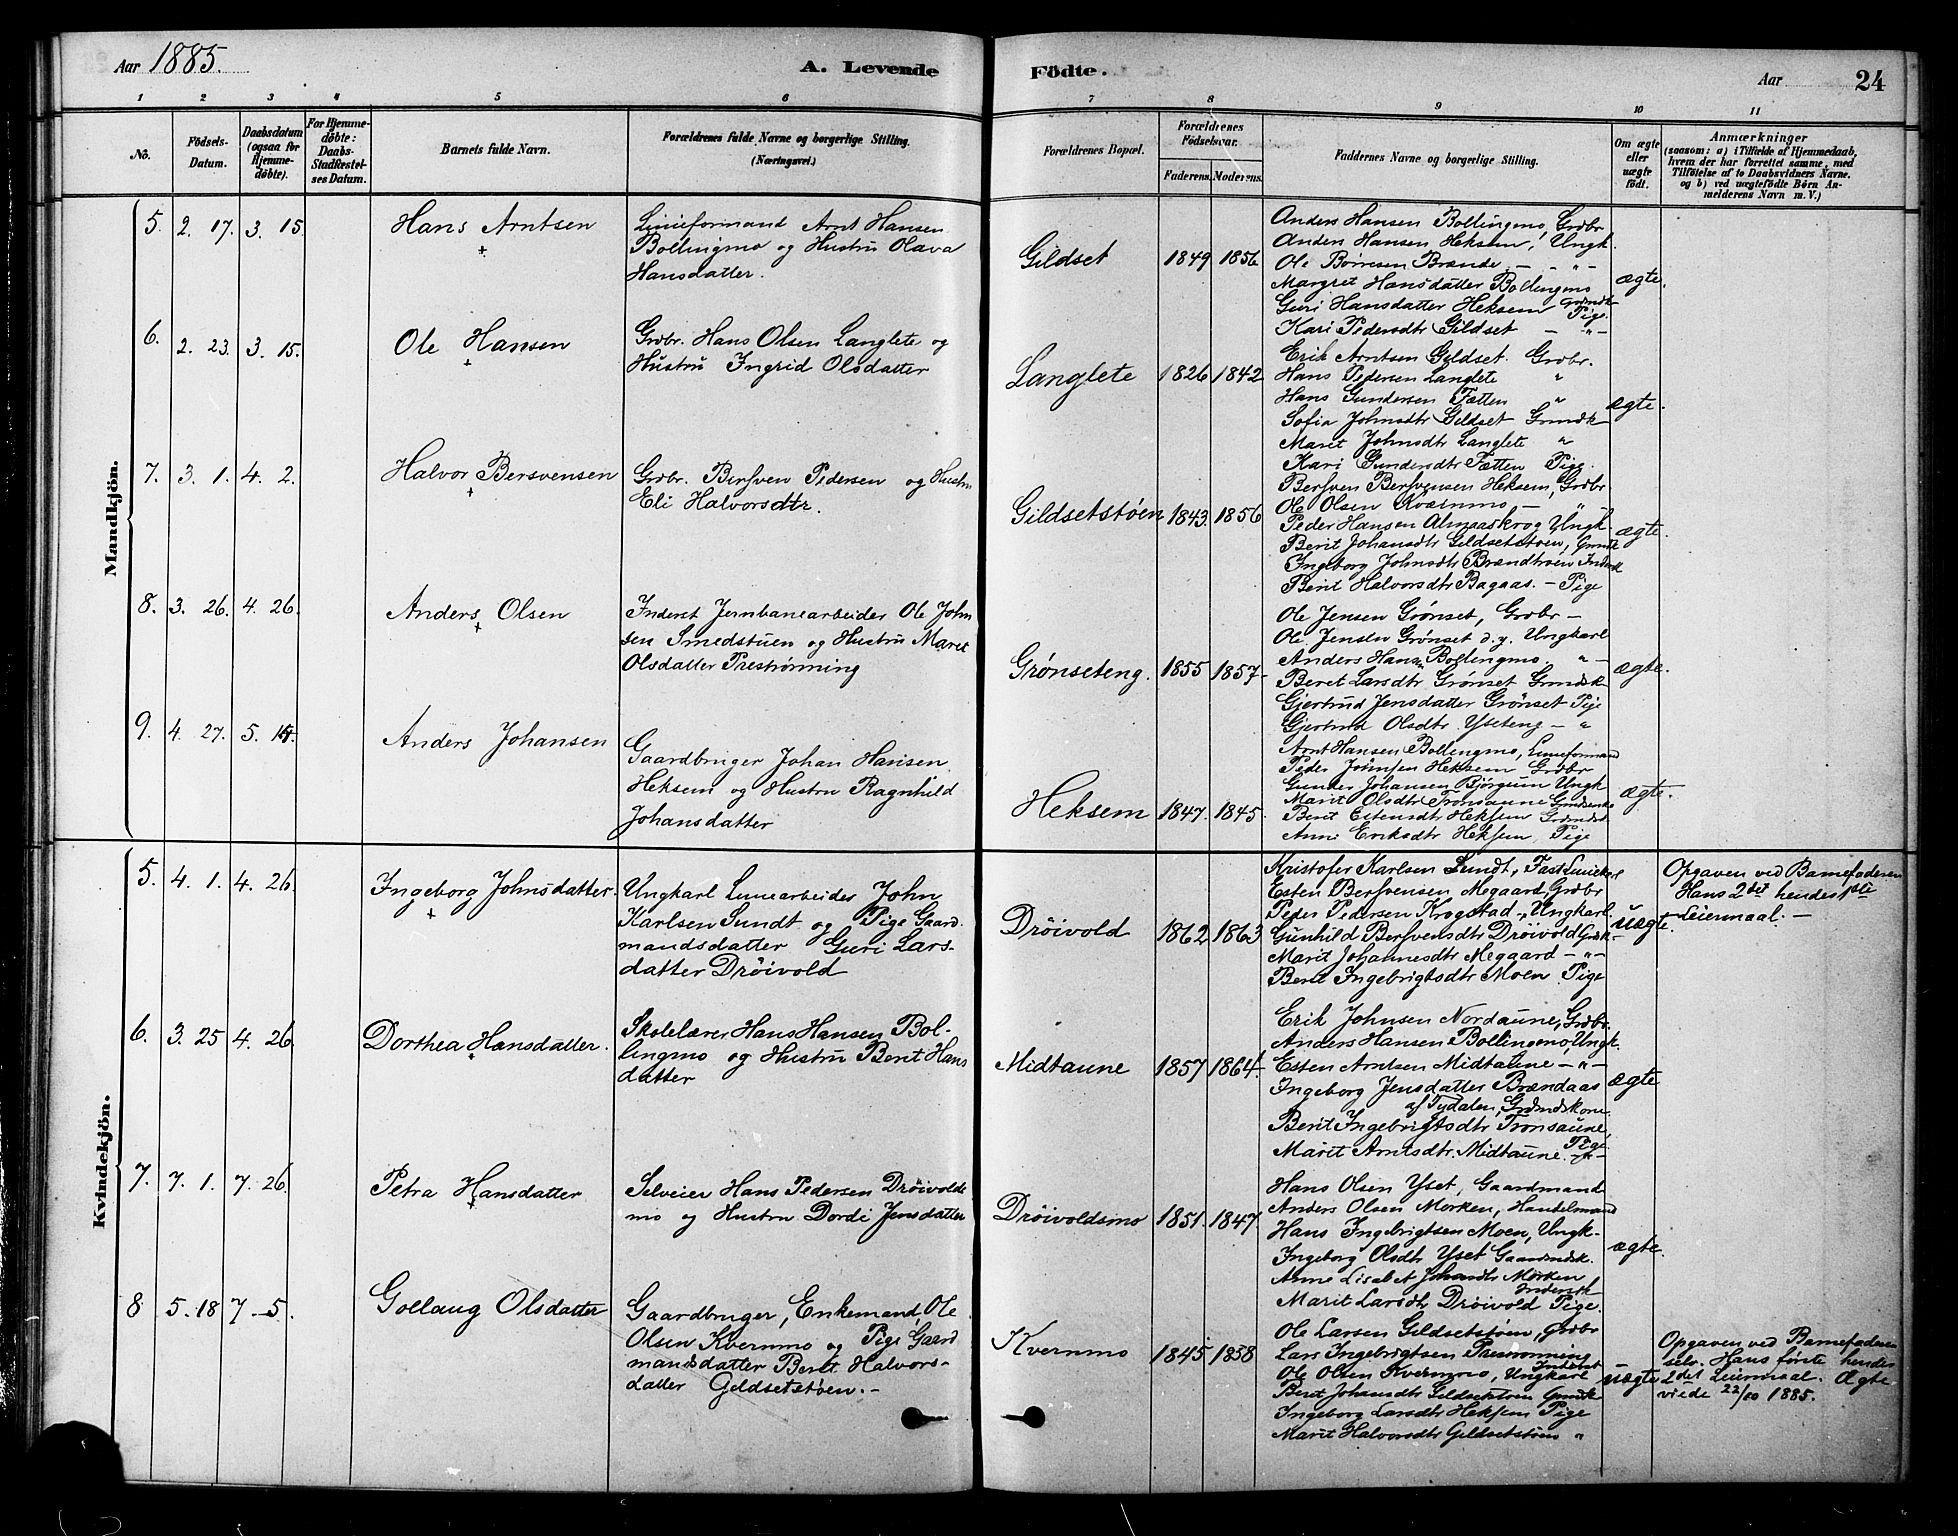 Aar 1885.
A. Levende
Födte.
Aar
24
1
2
3
4
5
6
7
8
9
10
11
No.
Födsels-
Datum.
Daabsdatum
(ogsaa for
Hjemme-
døbte).
For Hjemme-
døbte:
Daabs-
Stadfæstel-
ses Datum.
Barnets fulde Navn.
Forældrenes fulde Navne og borgerlige Stilling.
(Næringsvei.)
Forældrenes Bopæl.
Forældrenes
Födselsaar.
Faderens.
Moderens.
Faddernes Navne og borgerlige Stilling.
Om ægte
eller
uægte
födt.
Anmærkninger
(saasom: a) i Tilfælde af Hjemmedaab,
hvem der har forrettet samme, med
Tilföielse af to Daabsvidners Navne.
og b) ved uægtefödte Börn An-
melderens Navn m. V.)
Mandkjön.
5. 2. 17. 3. 15.
Hans Arntsen
Linieformand Arnt Hansen
Bollingmo og Hustru Olava
Hansdatter.
Gildset
1849 1856
Anders Hansen Bollingmo, Grdbr
Anders Hansen Heksem, Ungk.
Ole Børresen Brænde — „ —
Margret Hansdatter Bollingmo
Grdmdk
Guri Hansdatter Heksem Pige.
Kari Pedersdtr Gildset — „ —
ægte.
6. 2. 23. 3. 15.
Ole Hansen
Grdbr. Hans Olsen Langlete og
Hustru Ingrid Olsdatter
Langlete
1826 1842
Erik Arntsen Gildset. Grdbr.
Hans Pedersen Langlete „
Hans Gundersen Fætten „
Sofia Johnsdtr Gildset Grmdk
Marit Johnsdtr Langlete „
Kari Gundersdtr Fætten Pige.
ægte.
7. 3. 1. 4. 2.
Halvor Bersvensen
Grdbr. Bersven Pedersen og Hustru
Eli Halvorsdtr.
Gildsetstøen
1843. 1856
Bersven Bersvensen Heksem, Grdbr
Ole Olsen Kværnmo — „ —
Peder Hansen Almaaskrog Ungk.
Berit Johansdtr Gildsetstøen, Grmdk
Ingeborg Johnsdtr Brændtrøen Indstk
Berit Halvorsdtr Bagaas. — Pige
ægte.
8. 3. 26. 4. 26.
Anders Olsen
Inderst Jernbanearbeider Ole John
sen Smedstuen og Hustru Marit
Olsdatter Prestrønning
Grønseteng.
1855 1857
Ole Jensen Grønset, Grdbr —
Ole Jensen Grønset d.y. Ungkarl
Anders Hansn Bollingmo. „ —
Beret Larsdtr Grønset Grmdsk
Gjertrud Jensdatter Grønset Pige
Gjertrud Olsdtr Yseteng — „
ægte.
9. 4. 27. 5. 14.
Anders Johansen
Gaardbruger Johan Hansen
Heksem og Hustru Ragnhild
Johansdatter
Heksem
1847. 1845.
Arnt Hansen Bollingmo, Linieformand
Peder Johnsen Heksem Grdbr
Gunder Johansen Bjørgum Ungk
Marit Olsdtr Tronsaune Grmdsenke
Berit Estensdtr Heksem Grdmdsk
Anne Eriksdtr Heksem, Pige
ægte.
Kvindekjön.
5. 4. 1. 4. 26.
Ingeborg Johnsdatter.
Ungkarl Liniearbeider John
Karlsen Sundt og Pige Gaard
mandsdatter Guri Lars-
datter Drøivold
Drøivold
1862 1863
Kristofer Karlsen Sundt, Fast Liniekarl
Esten Bersvensen Megaard Grdbr
Peder Pedersen Krogstad —, Ungkarl.
Gunhild Bersvensdtr Drøivold Grdk-
Marit Johannesdtr Megaard — „ —
Berit Ingebrigtsdtr Moen. Pige
uægte.
Opgaven ved Barnefaderen
Hans 2det hendes 1ste
Leiermaal. —
6. 3. 25 4. 26.
Dorthea Hansdatter.
Skolelærer Hans Hansen Bol-
lingmo og Hustru Berit Hans
datter
Midtaune
1857. 1864.
Erik Johnsen Nordaune, Grdbr.
Anders Hansen Bollingmo, Ungk.
Esten Arntsen Midtaune — „ —
Ingeborg Jensdatter Brændaas
af Tydalen, Grdmdskone
Berit Ingebrigtsdtr Tronsaune,
Pige
Marit Arntsdtr. Midtaune. — „ —
ægte
7. 7. 1. 7. 26.
Petra Hansdatter
Selveier Hans Pedersen Drøivolds
mo og Hustru Dordi Jensdatter
Drøivoldsmo
1851. 1847.
Hans Olsen Yset, Gaardmand
Anders Olsen Morken, Handelsmand
Hans Ingebrigtsen Moen, Ungk-
Ingeborg Olsdtr Yset Gaardmdsk.
Anne Lisabet Johansdtr Morken
Inderstk
Marit Larsdtr Drøivold Pige.
ægte.
8 5. 18 7 — 5.
Gollaug Olsdatter
Gaardbruger, Enkemand, Ole
Olsen Kvernmo og Pige Gaard
mandsdatter Berit Halvors-
datter Gildsetstøen. —
Kvernmo
1845 1858
Ole Larsen Gildsetstøen, Grdbr
Lars Ingebrigtsen Prestrønning
Inderst
Ole Olsen Kvernmo, Ungkarl
Berit Johansdtr Gildsetstøen Grmdk
Ingeborg Larsdtr Heksem Pige
Marit Halvorsdtr Gildsetstøen „
uægte
Opgaven ved Barnefaderen
selv. Hans første hendes
2det Leiermaal. Ægte
viede 22/10 1885.